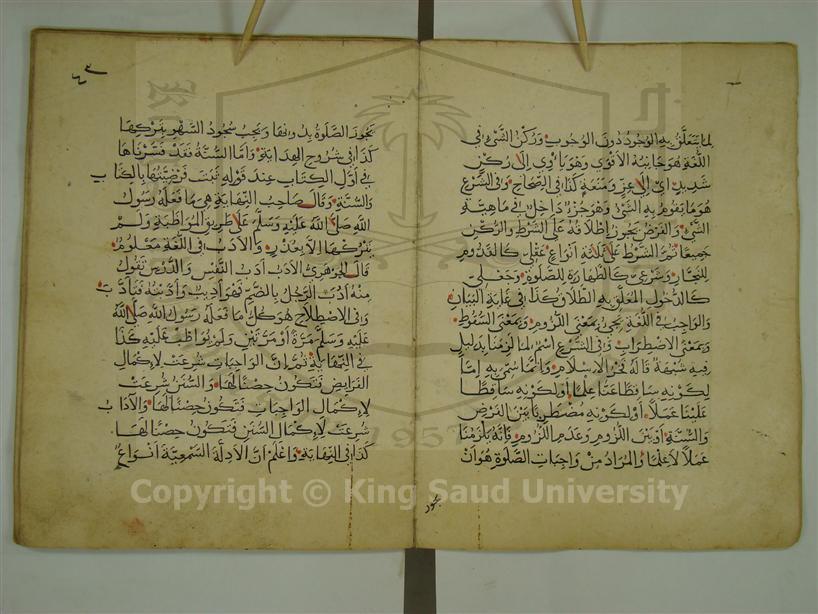 لما يتعلق به الوجود دون الوجوب وركن الشيء في
اللغة هو جانبه الاقوى وهو ياوي الى ركن
شديد اي الى عز ومنعة كذا في الصحاح وفي الشرع
هو ما يقوم به الشيء وهو جزء داخل في ماهية
الشيء والفرض يجوز اطلاقه على الشرط والركن
جميعا ثم الشرط على ثلثة انواع عقلي كالقدوم
للنجار وشرعي كالطهارة للصلوة وجعلي
كالدخول المعلق به الطلاق كذا في غاية البيان
والواجب في اللغة يجيء بمعنى اللزوم وبمعنى السقوط
وبمعنى الاضطراب وفي الشرع اسم لما لزمنا بدليل
فيه شبهة قال فخر الاسلام وانما سمي به اما
لكونه ساقطا عنا علما او لكونه ساقطا
علينا عملا او لكونه مضطربا بين الفرض
والسنة او بين اللزوم وعدم اللزوم فانه يلزمنا
عملا لا علما والمراد من واجبات الصلوة هو ان
تجوز الصلوة بدونها ويجب سجود السهو بتركها
كذا في شروح الهداية واما السنة فقد فسرناها
في اول الكتاب عند قوله ثبتت فرضيتها بالكتاب
والسنة وقال صاحب النهاية هي ما فعله رسول
الله صلى الله عليه وسلم على طريق المواظبة ولم
يتركها الا بعذر والادب في اللغة معلوم
قال الجوهري الادب ادب النفس والدرس تقول
منه ادب الرجل بالضم فهو اديب وادبته فتادب
وفي الاصطلاح هو كل ما فعله رسول الله صلى الله
عليه وسلم مرة او مرتين ولم يواظب عليه كذا
في النهاية ثم ان الواجبات شرعت لاكمال
الفرايض فتكون حصنا لها والسنن شرعت
لاكمال الواجبات فتكون حصنا لها والاداب
شرعت لاكمال السنن فتكون حصنا لها
كذا في النهاية واعلم ان الادلة السمعية انواع
Copyright © King Saud University
1957